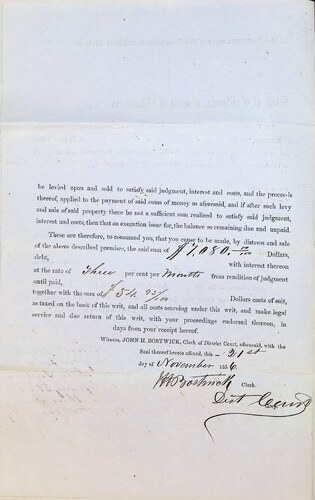 be levied upon and sold to satisfy said judgment, interest and costs, and the proceeds
thereof, applied to the payment of said sums of money as aforesaid, and if after such levy
and sale of said property there be not a sufficient sum realized to satisfy said judgment,
interest and costs, then that an execution issue for the balance so remaining due and unpaid.
These are therefore, to command you, that you cause to be made, by distress and sale
of the above described premises, the said sum of $1,080.00 Dollars,
debt, with interest thereon
at the rate of Three per cent per Months from rendition of judgment
until paid,
together with the sum of $54 Dollars costs of suit,
as taxed on the back of this writ, and all costs accruing under this writ, and make legal
service and due return of this writ, with your proceedings endorsed thereon, in
days from your receipt hereof.
Witness, JOHN H. BOSTWICK, Clerk of District Court, aforesaid, with the
Seal thereof hereto affixed, this 21st
day of November 1856.
JH Bostwick Clerk.
Dist Court